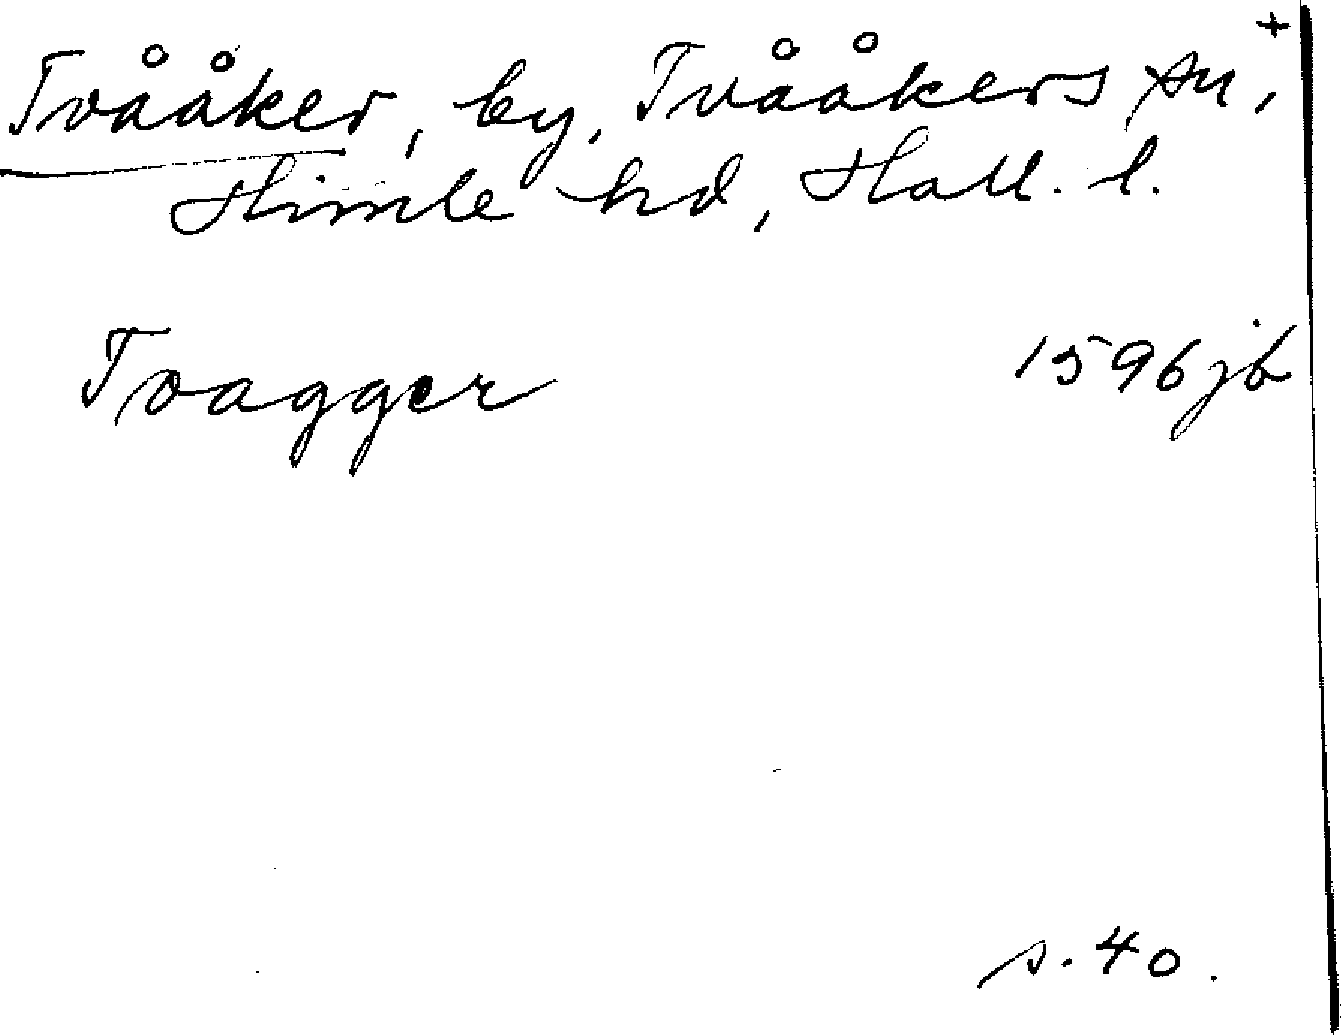 Tvååker, by, Tvååkers sn, +
Himle hd, Hall. l.
Tvagger 1596 jb
s. 40.